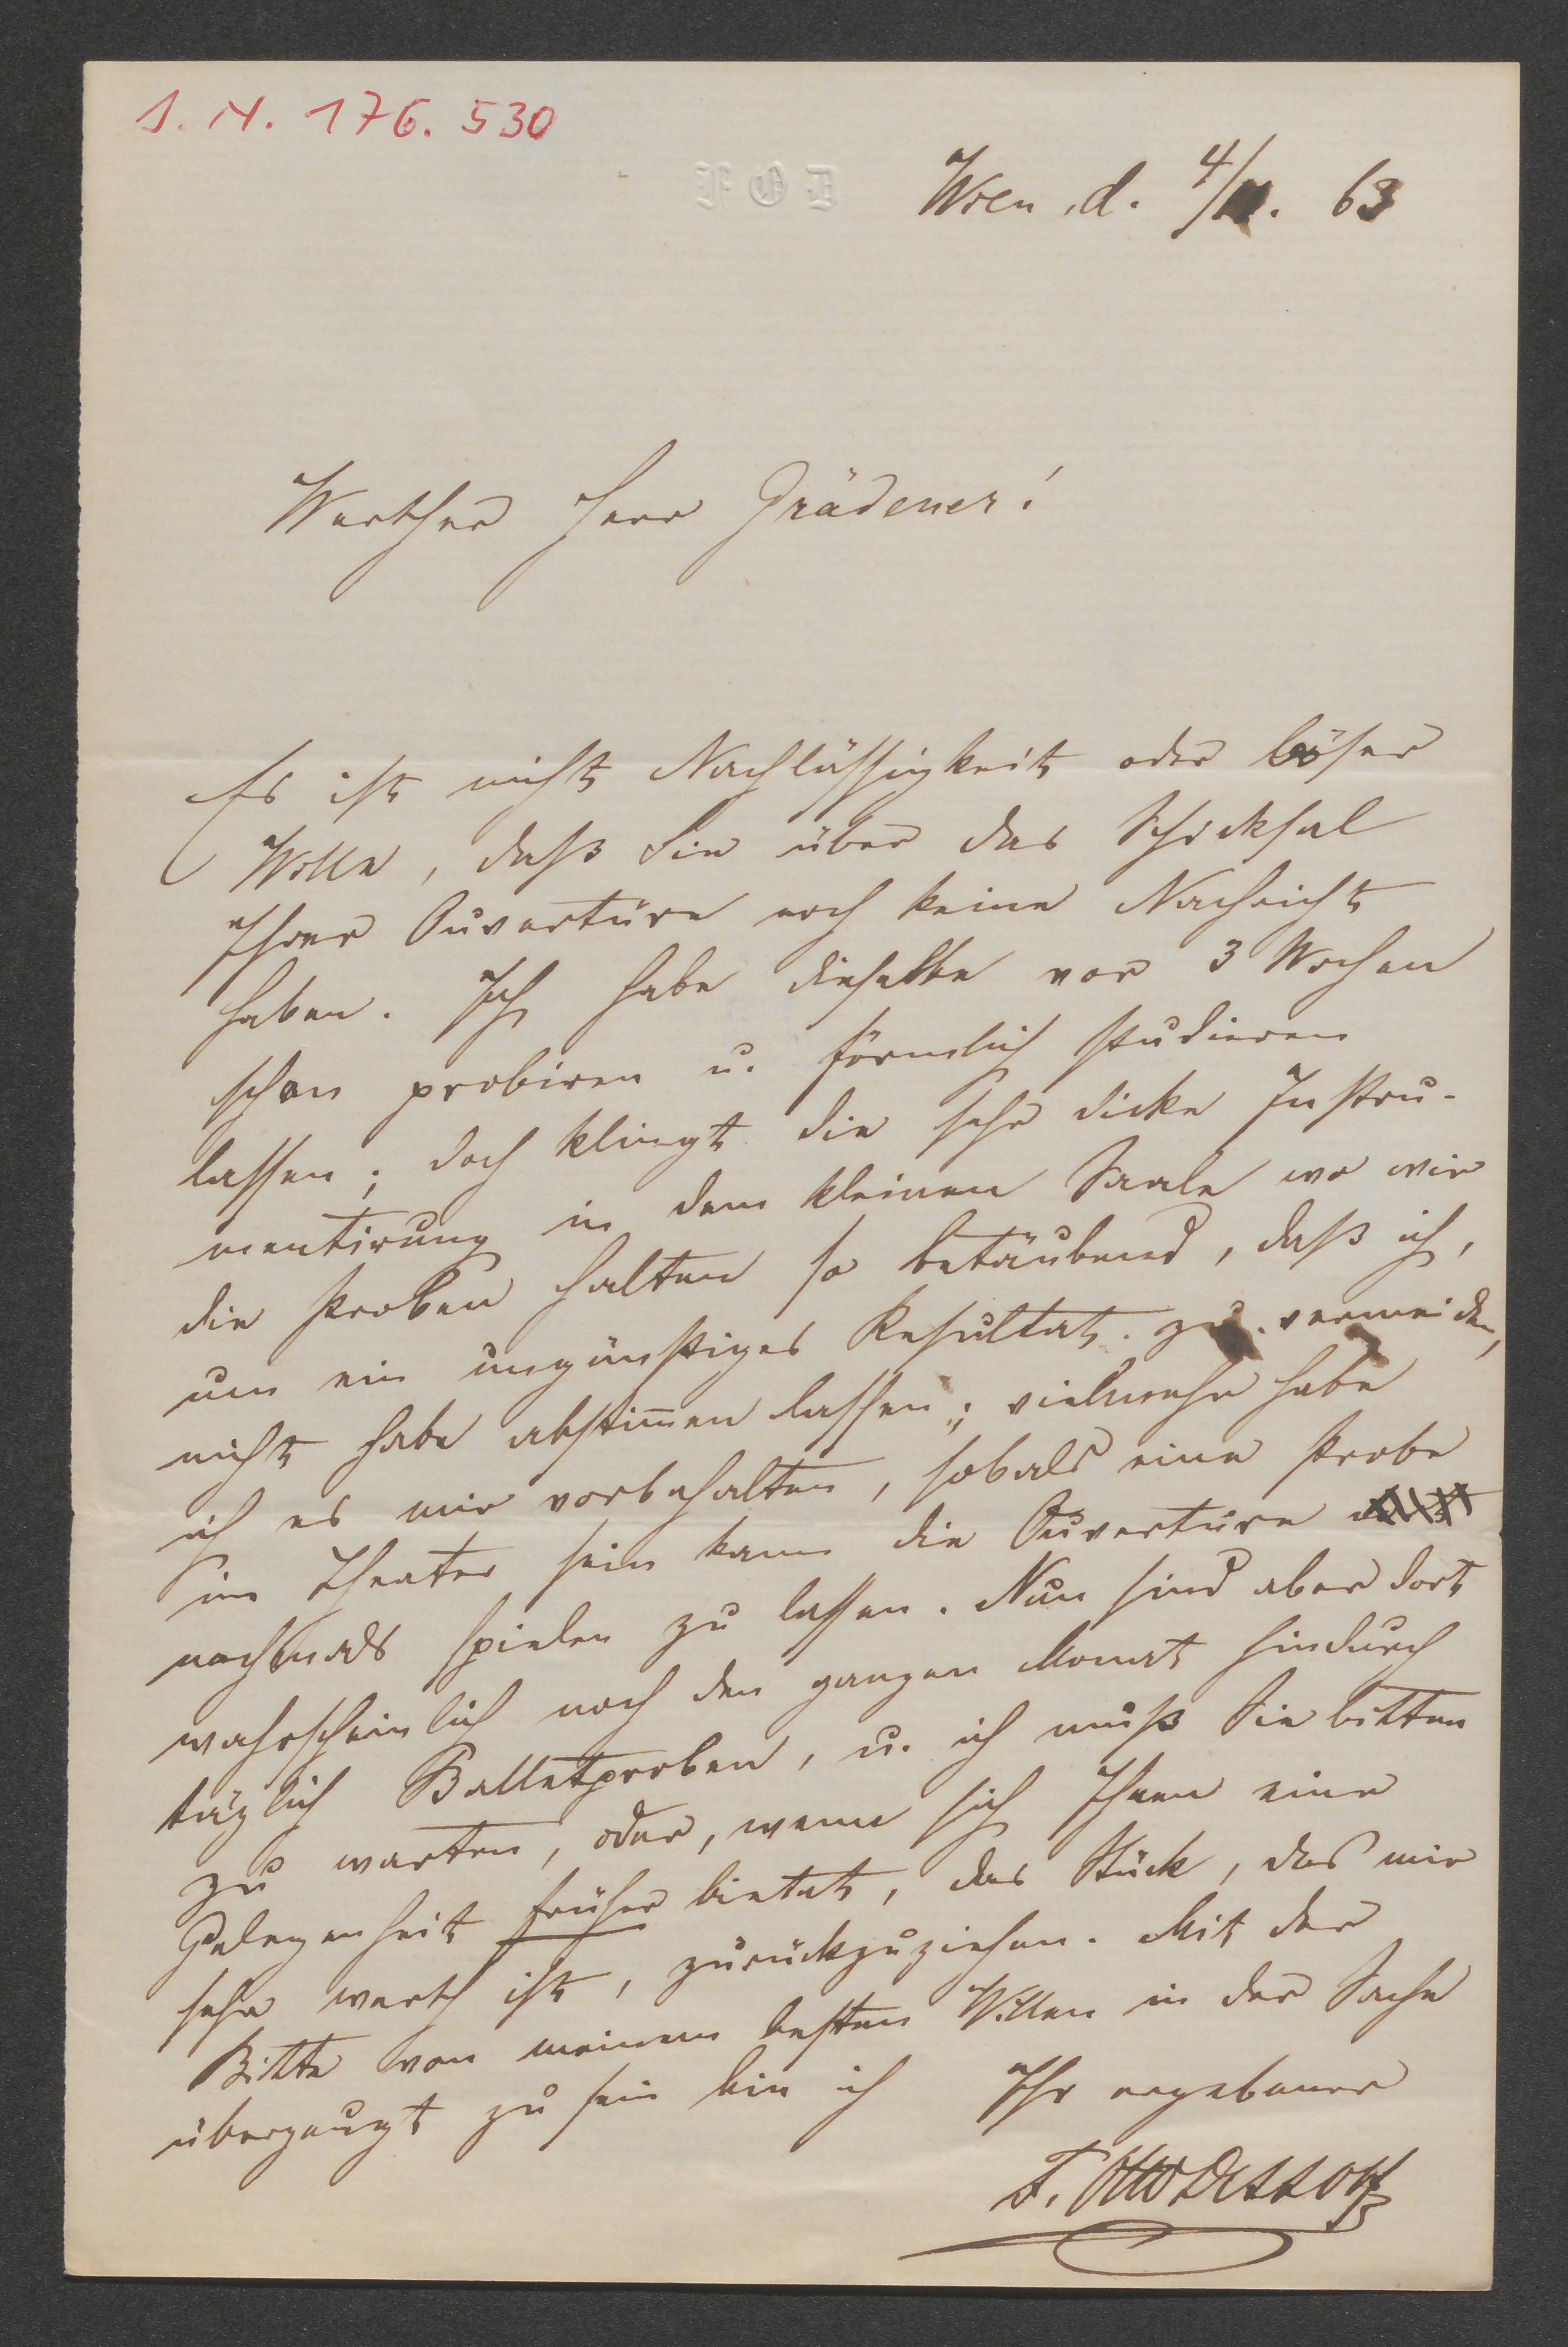 I. N. 176.530
F O D
Wien, d. 4/11. 63
Werther Herr Grädener!
Es ist nicht Nachlässigkeit oder böser
Wille, daß Sie über das Schicksal
Ihrer Ouvertüre noch keine Nachricht
haben. Ich habe dieselbe vor 3 Wochen
schon probiren u. förmlich studieren
lassen; doch klingt die sehr dicke Instru-
mentirung in dem kleinen Saale wo wir
die Proben halten so betäubend, daß ich,
um ein ungünstiges Resultat zu vermeiden,
nicht habe abstim̅en lassen; vielmehr habe
ich es mir vorbehalten, sobald eine Probe
im Theater sein kann die Ouvertüre
nochmals spielen zu lassen. Nun sind aber dort
wahrscheinlich noch den ganzen Monat hindurch
täglich Balletproben, u. ich muß Sie bitten
zu warten, oder, wenn sich Ihnen eine
Gelegenheit früher bietet, das Stück, das mir
sehr werth ist, zurückzuziehen. Mit der
Bitte von meinem besten Willen in der Sache
überzeugt zu sein bin ich Ihr ergebener
F. Otto Dessoff